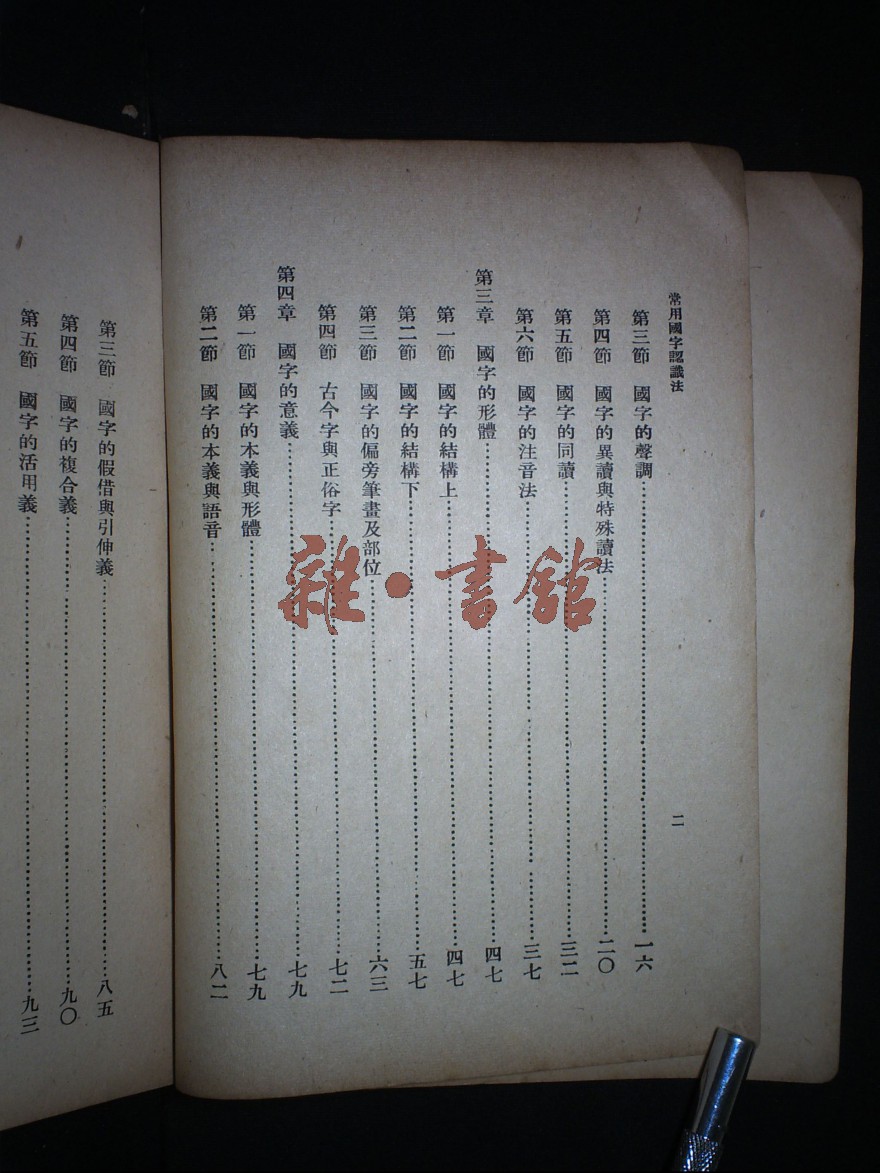 常用國字認識法
二
第三節 國字的聲調……一六
第四節 國字的異讀與特殊讀法……二〇
第五節 國字的同讀……三二
第六節 國字的注音法……三七
第三章 國字的形體……四七
第一節 國字的結構上……四七
第二節 國字的結構下……五七
第三節 國字的偏旁筆畫及部位……六三
第四節 古今字與正俗字……七二
第四章 國字的意義……七九
第一節 國字的本義與形體……七九
第二節 國字的本義與語音……八二
第三節 國字的假借與引伸義……八五
第四節 國字的複合義……九〇
第五節 國字的活用義……九三
雜·書館